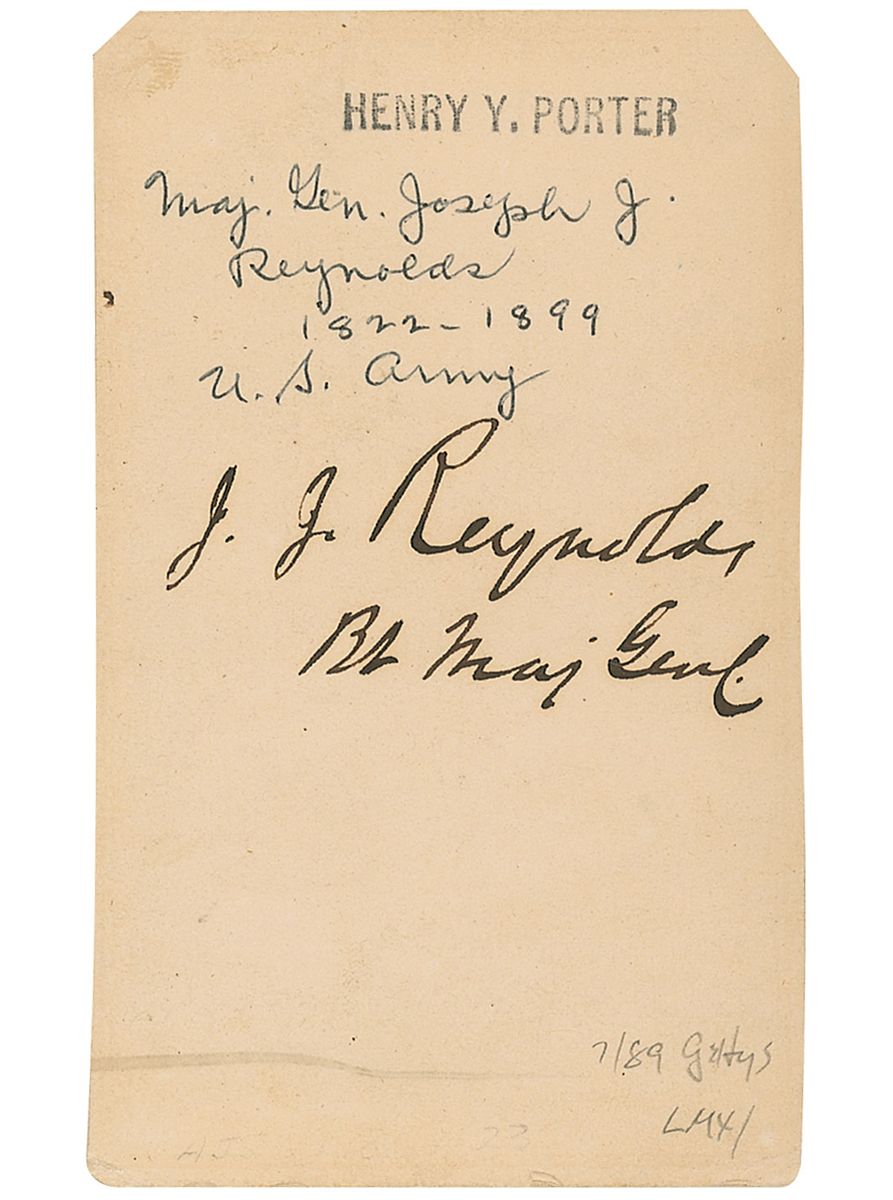 HENRY Y. PORTER
Maj. Gen. Joseph J.
Reynolds
1822-1899
U.S. Army
J. J. Reynolds
Bt Maj Genl.
7/89 Gettys